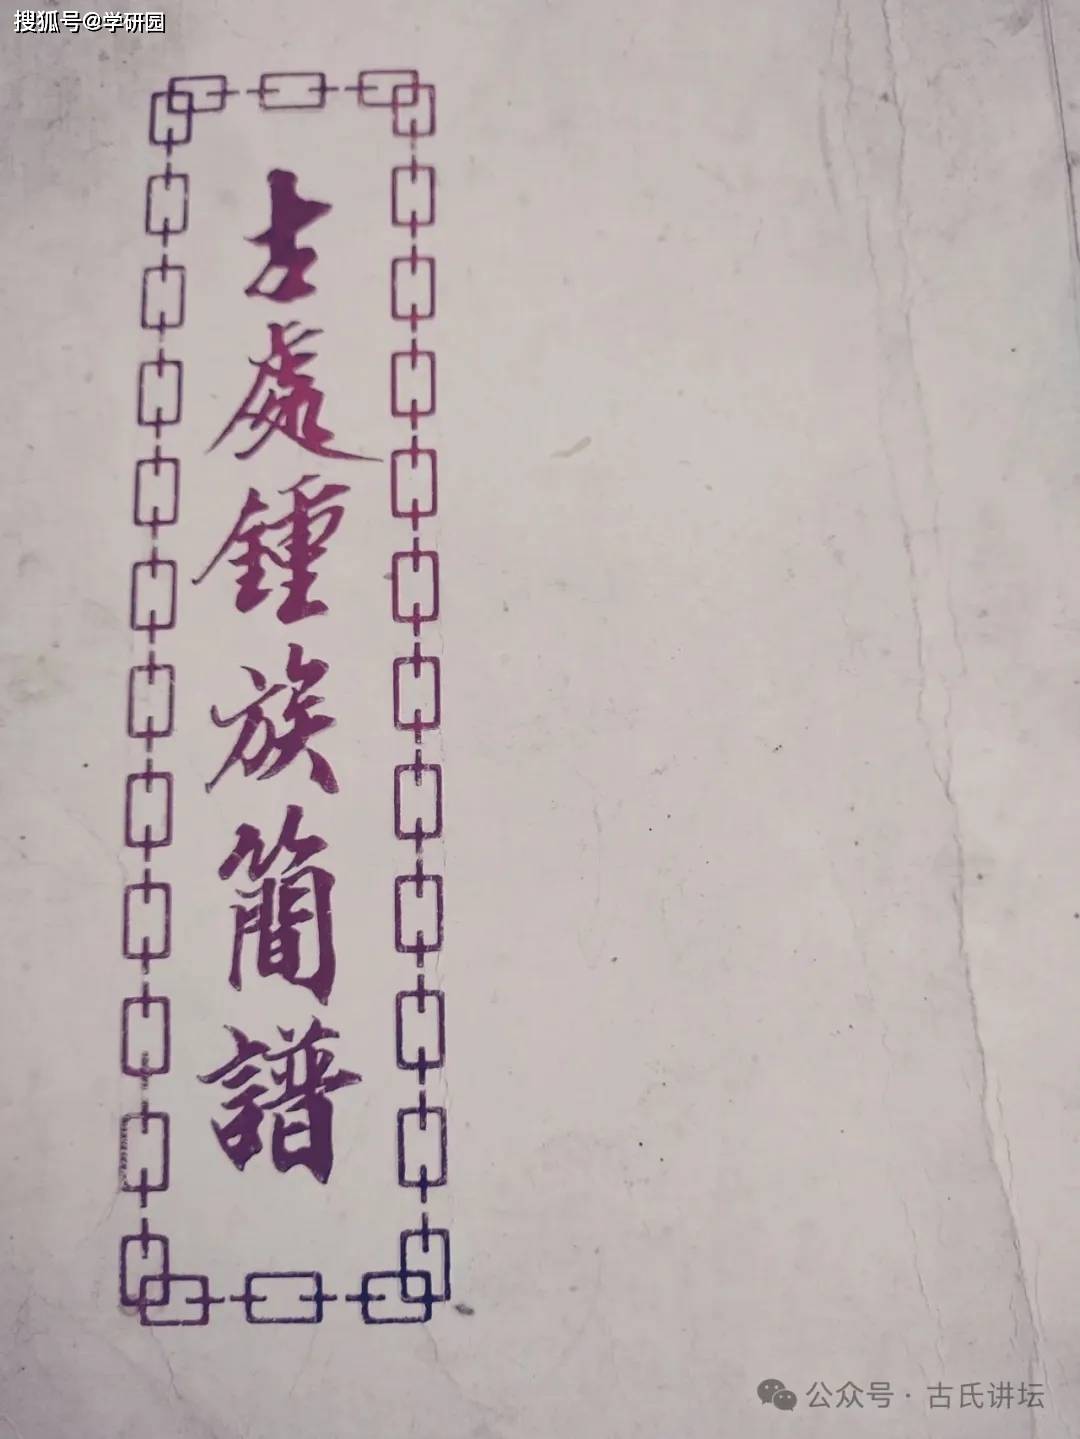 搜狐号@学研园
處鍾族簡譜
公众号·古氏讲坛